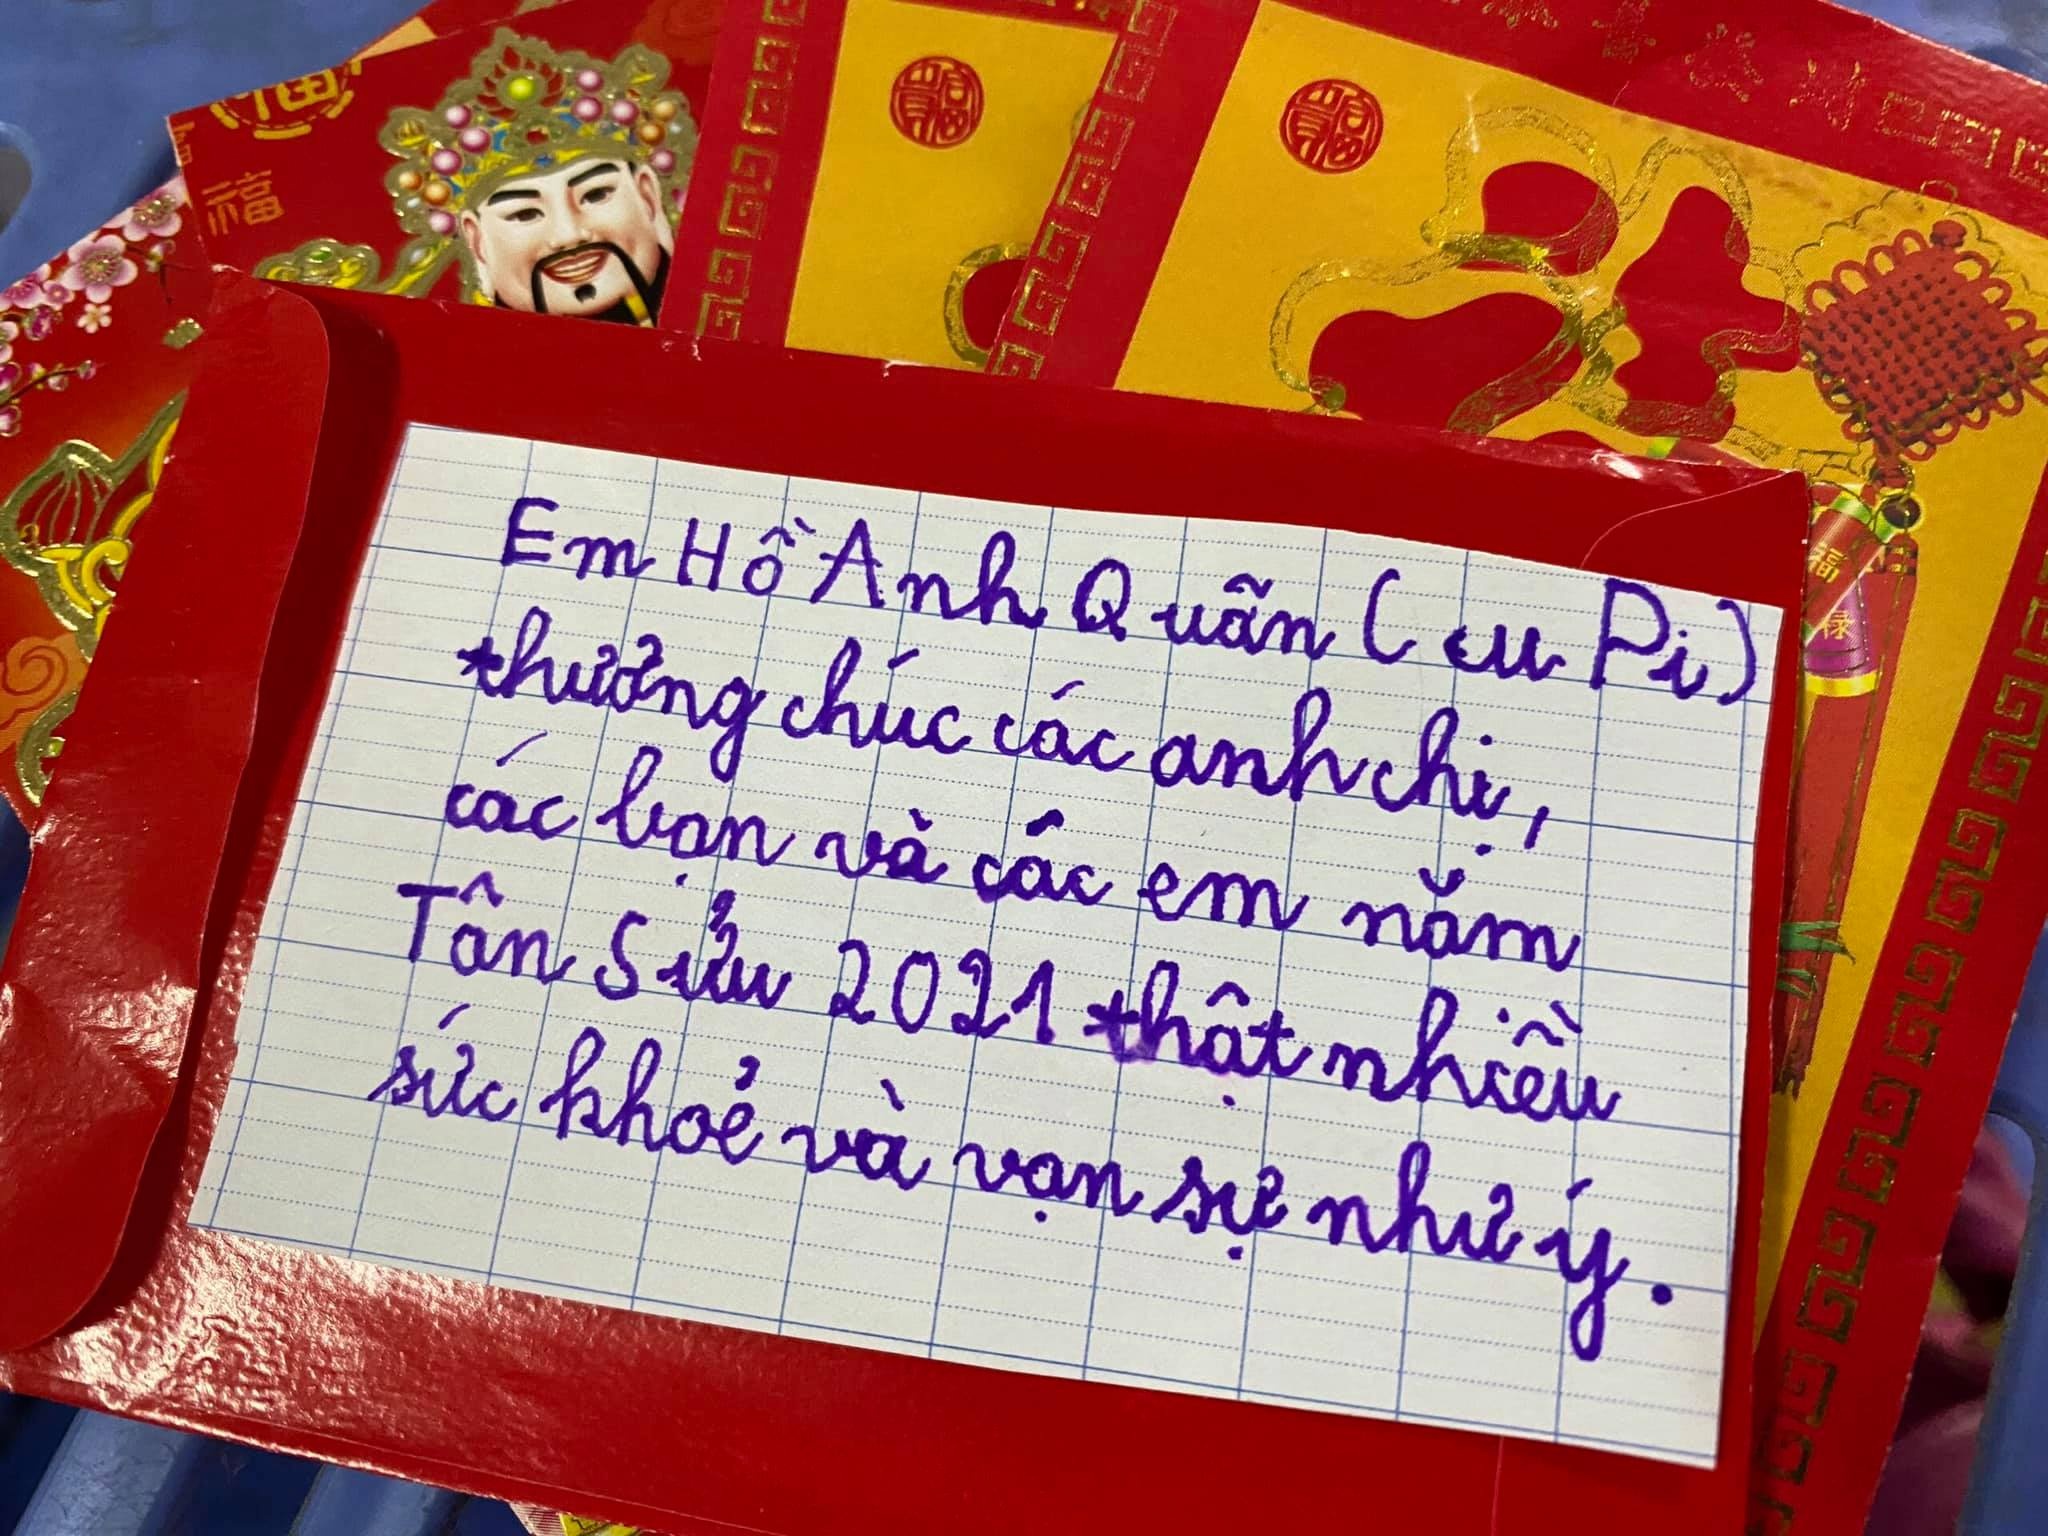 福
福
Em Hồ Anh Quãn (cu Pi)
thưởng chúc các anh chị,
các bạn và các em năm
Tân Sửu 2021 thật nhiều
sức khỏe và vạn sự như ý.
福
祿